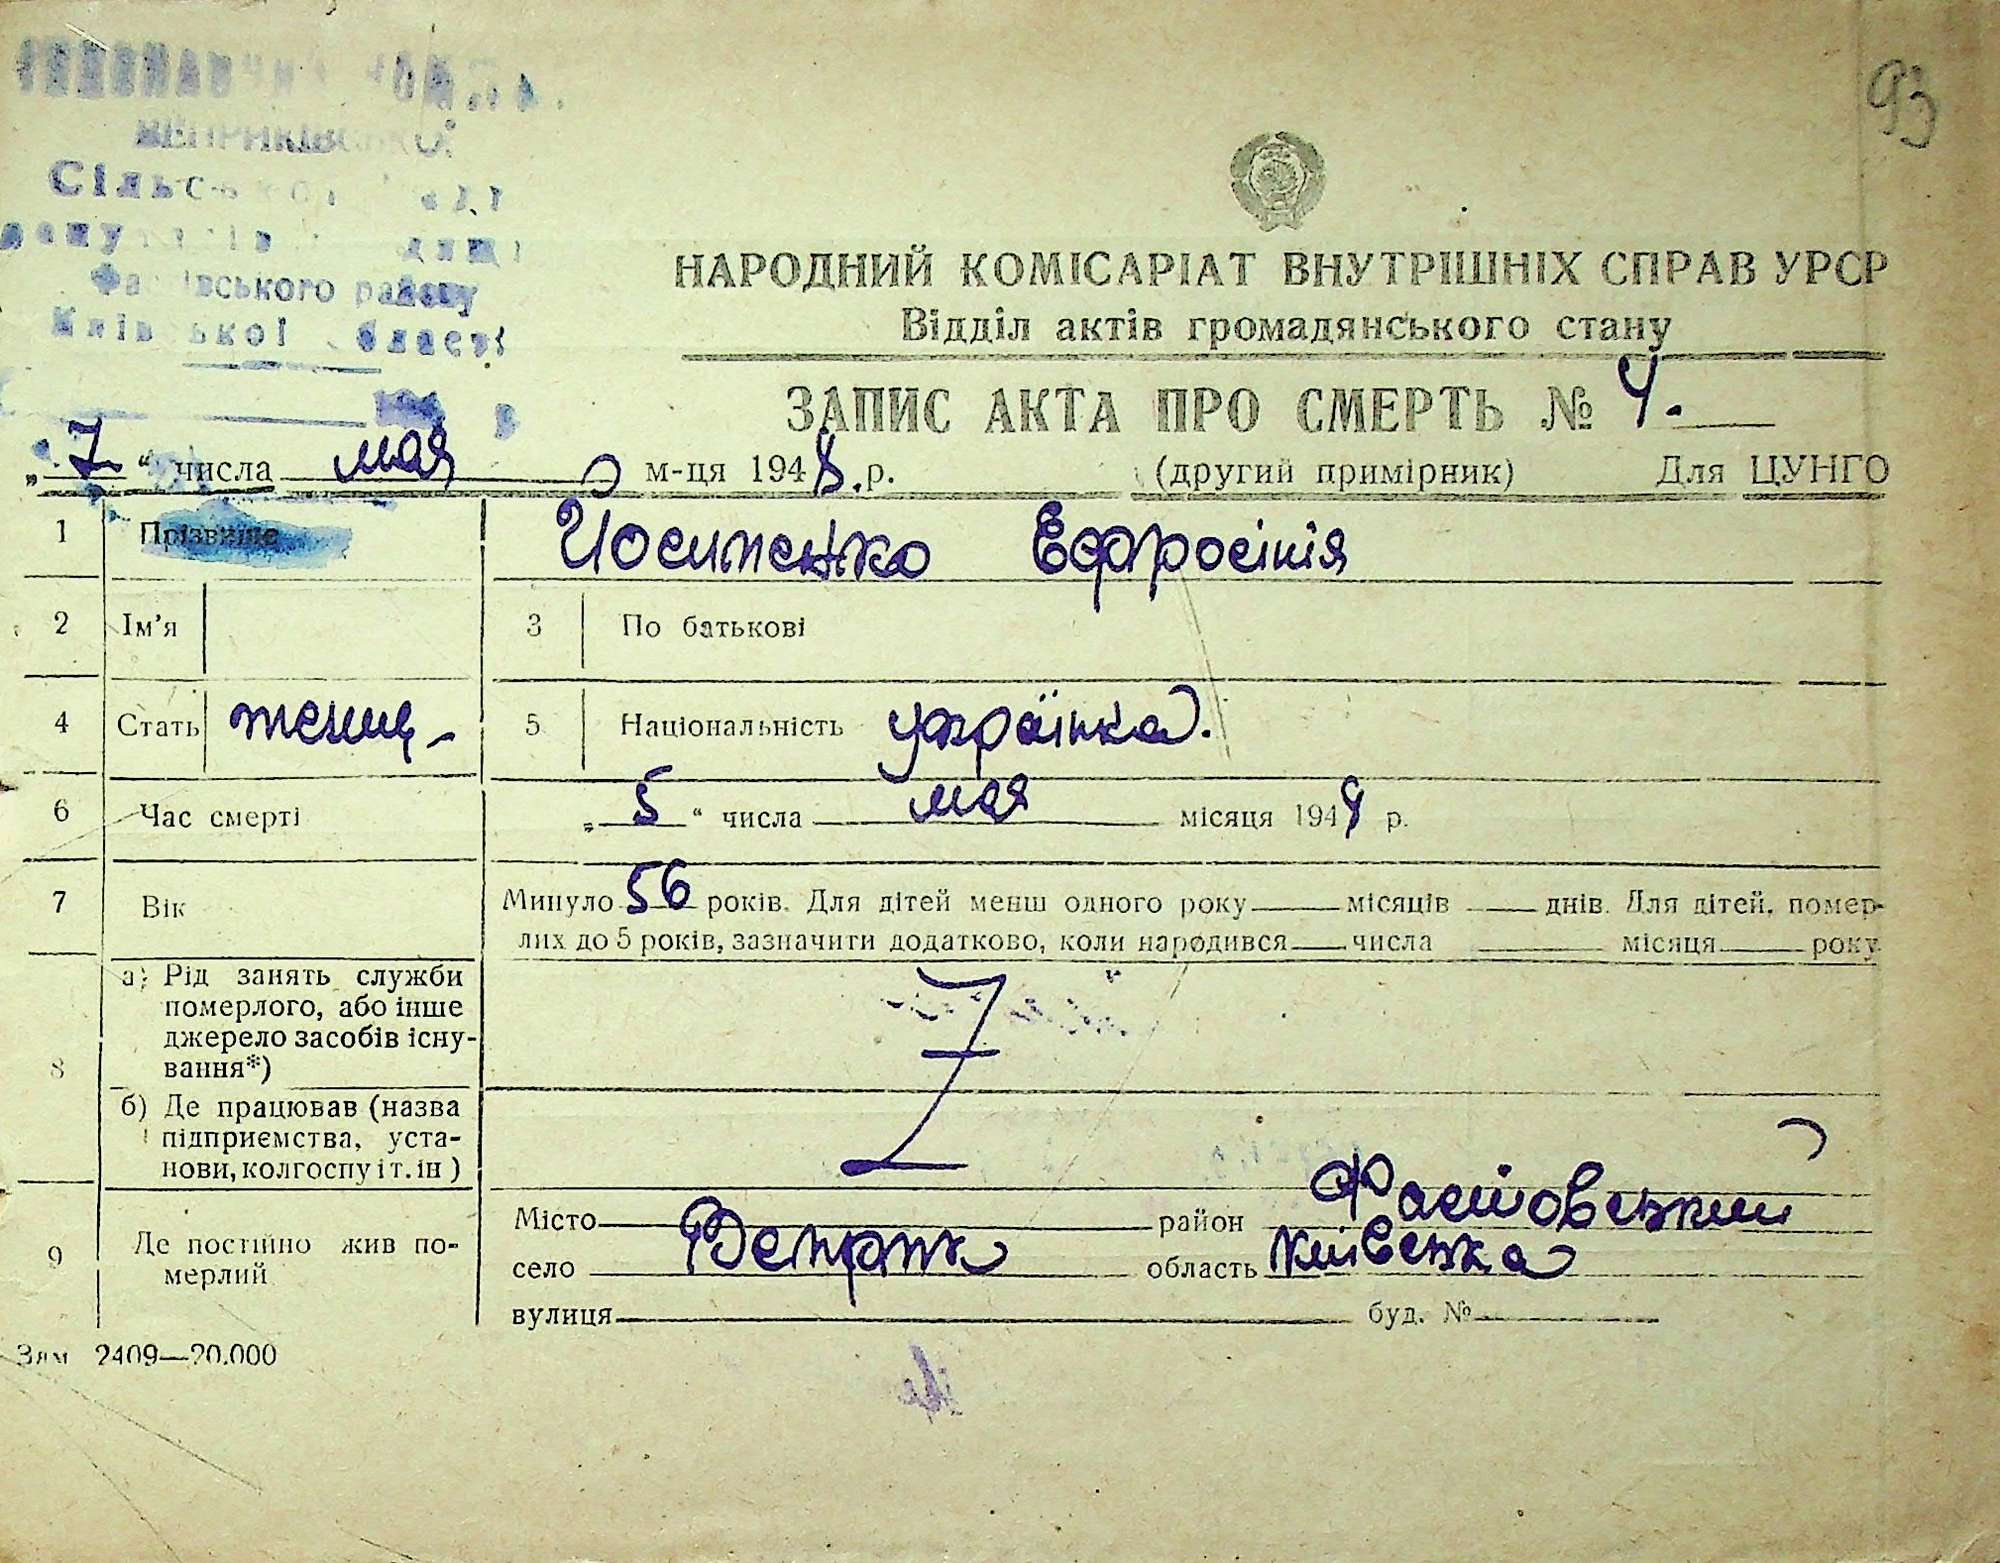 93
ВЕПРИКІВСЬКОЇ
Сільської
Фастівського району
Київської області
НАРОДНИЙ КОМІСАРІАТ ВНУТРІШНІХ СПРАВ УРСР
Відділ актів громадянського стану
ЗАПИС АКТА ПРО СМЕРТЬ № 4.
„7“ числа мая м-ця 1948.р. (другий примірник) Для ЦУНГО
1 Прізвище Йосипенко Ефросінія
2 Ім’я 3 По батькові
4 Стать женщ- 5 Національність українка.
6 Час смерті „5“ числа мая місяця 194 р.
7 Вік Минуло 56 років. Для дітей менш одного року місяців днів. Для дітей, помер-
лих до 5 років, зазначити додатково, коли народився числа місяця року
8 а) Рід занять служби
померлого, або інше
джерело засобів існу-
вання*)
б) Де працював (назва
підприємства, уста-
нови, колгоспу і т. ін )
9 Де постійно жив по-
мерлий
Місто район Фастовский
село Веприк область Київська
вулиця буд. №
Зам 2409—20.000